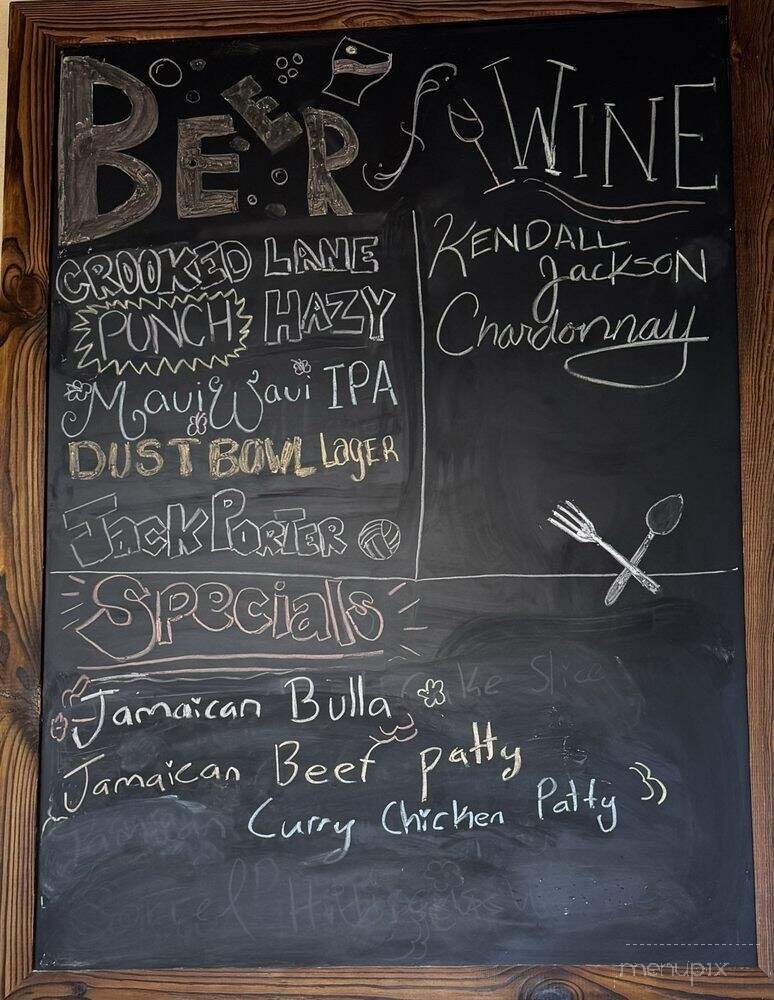 BEER
WINE
CROOKED LANE
PUNCH HAZY
Maui Waui IPA
DUST BOWL Lager
Jack Porter
KENDALL
Jackson
Chardonnay
Specials
Cake Slice
Jamaican Bulla
Jamaican Beef patty
Curry Chicken Patty
Sorrel
menupix